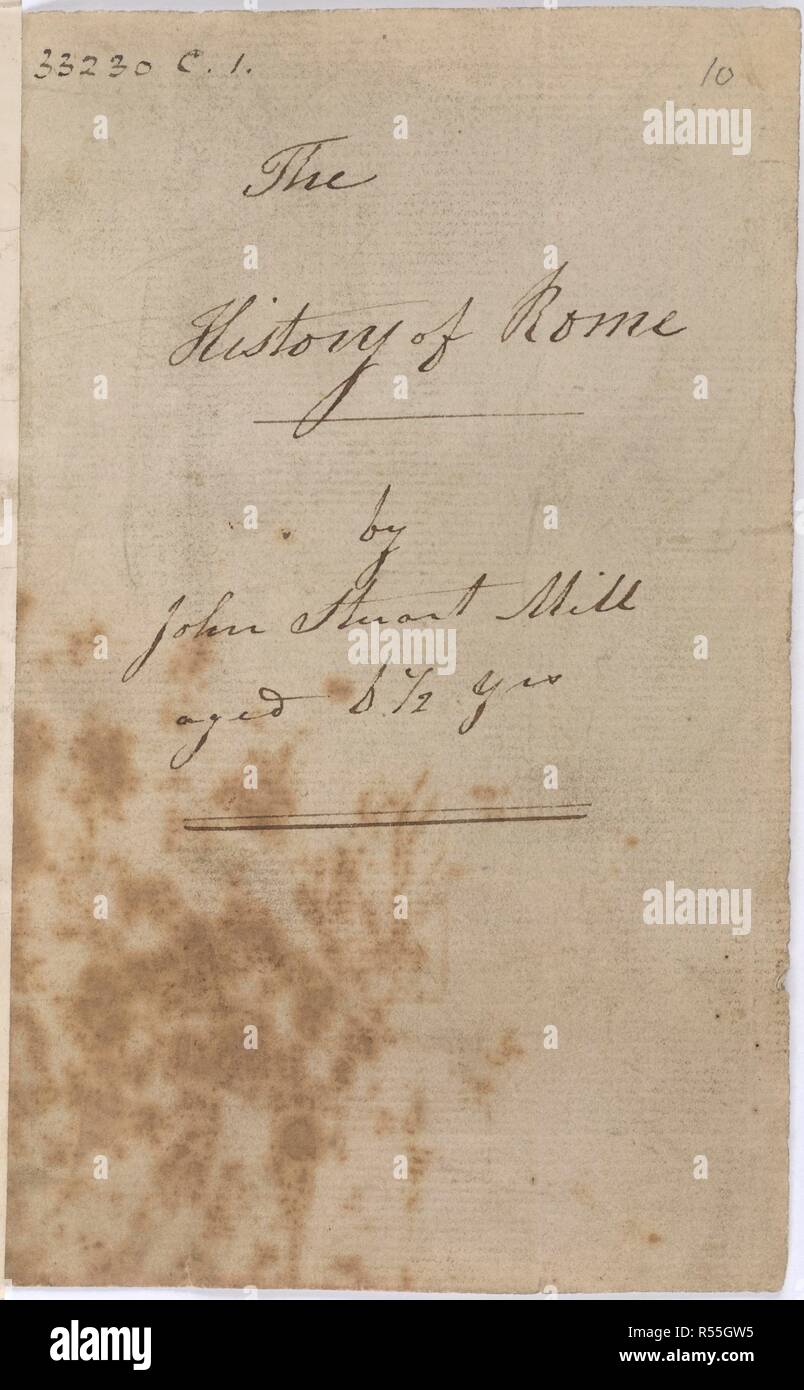 33230 C. 1.
10
The
History of Rome
by
John Stuart Mill
aged 6 1/2 yrs
alamy
Image ID: R55GW5
www.alamy.com